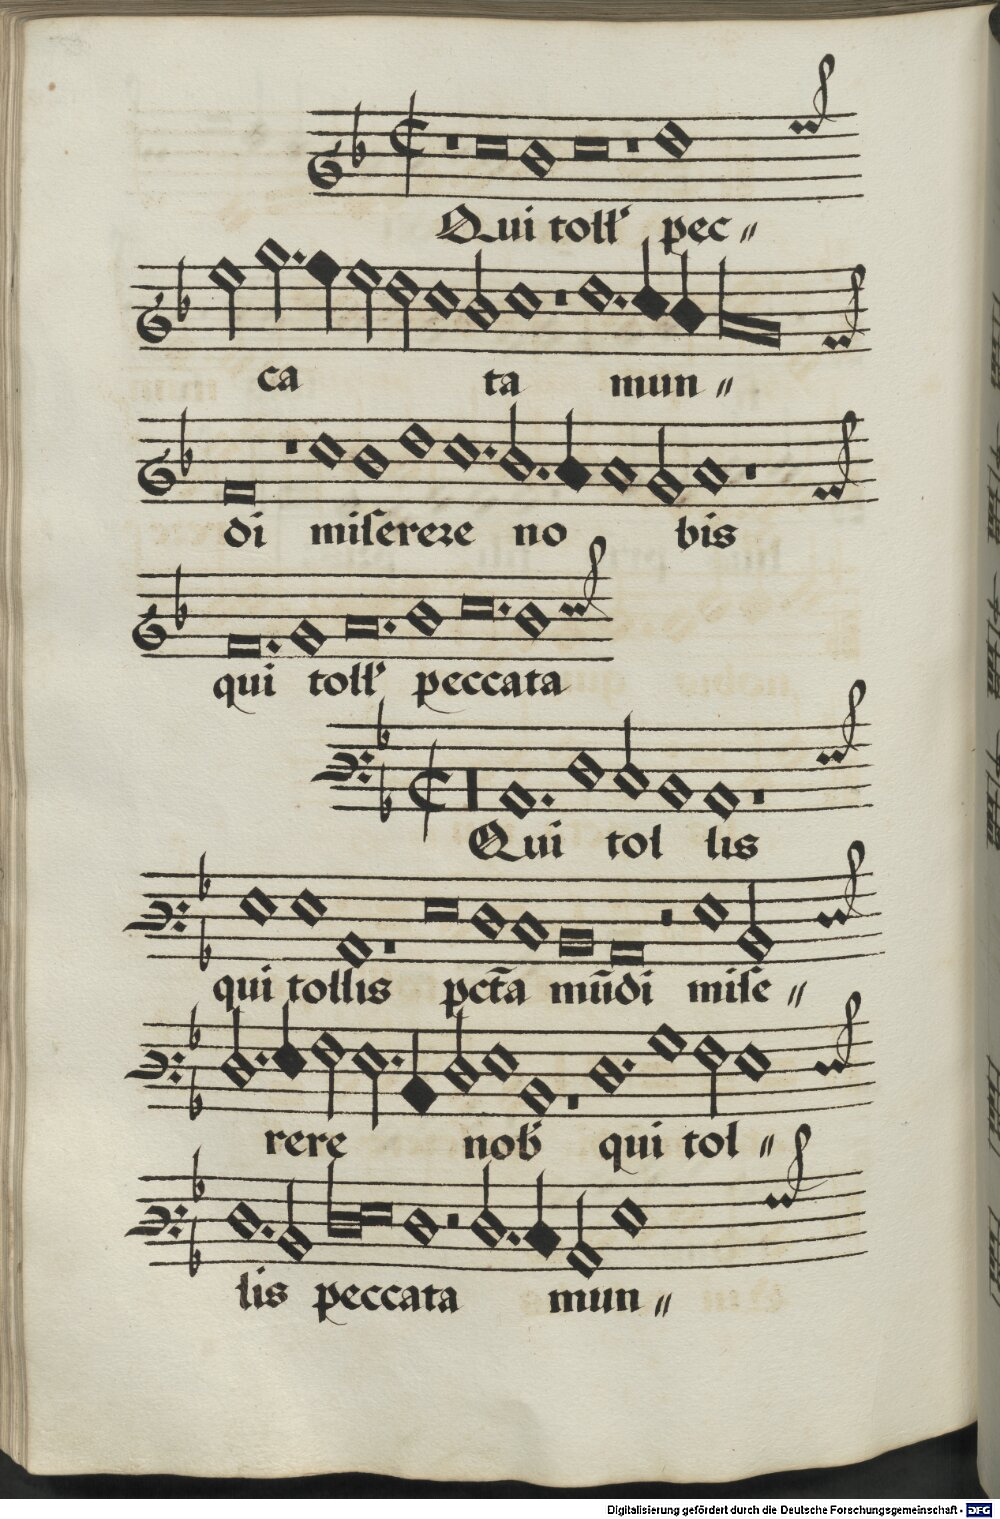 Qui toll' pec〃
ca ta mun〃
di miserere no bis
qui toll' peccata
Qui tol lis
qui tollis pct̄a mūdi mise〃
rere nob' qui tol〃
lis peccata mun〃
Digitalisierung gefördert durch die Deutsche Forschungsgemeinschaft - DFG